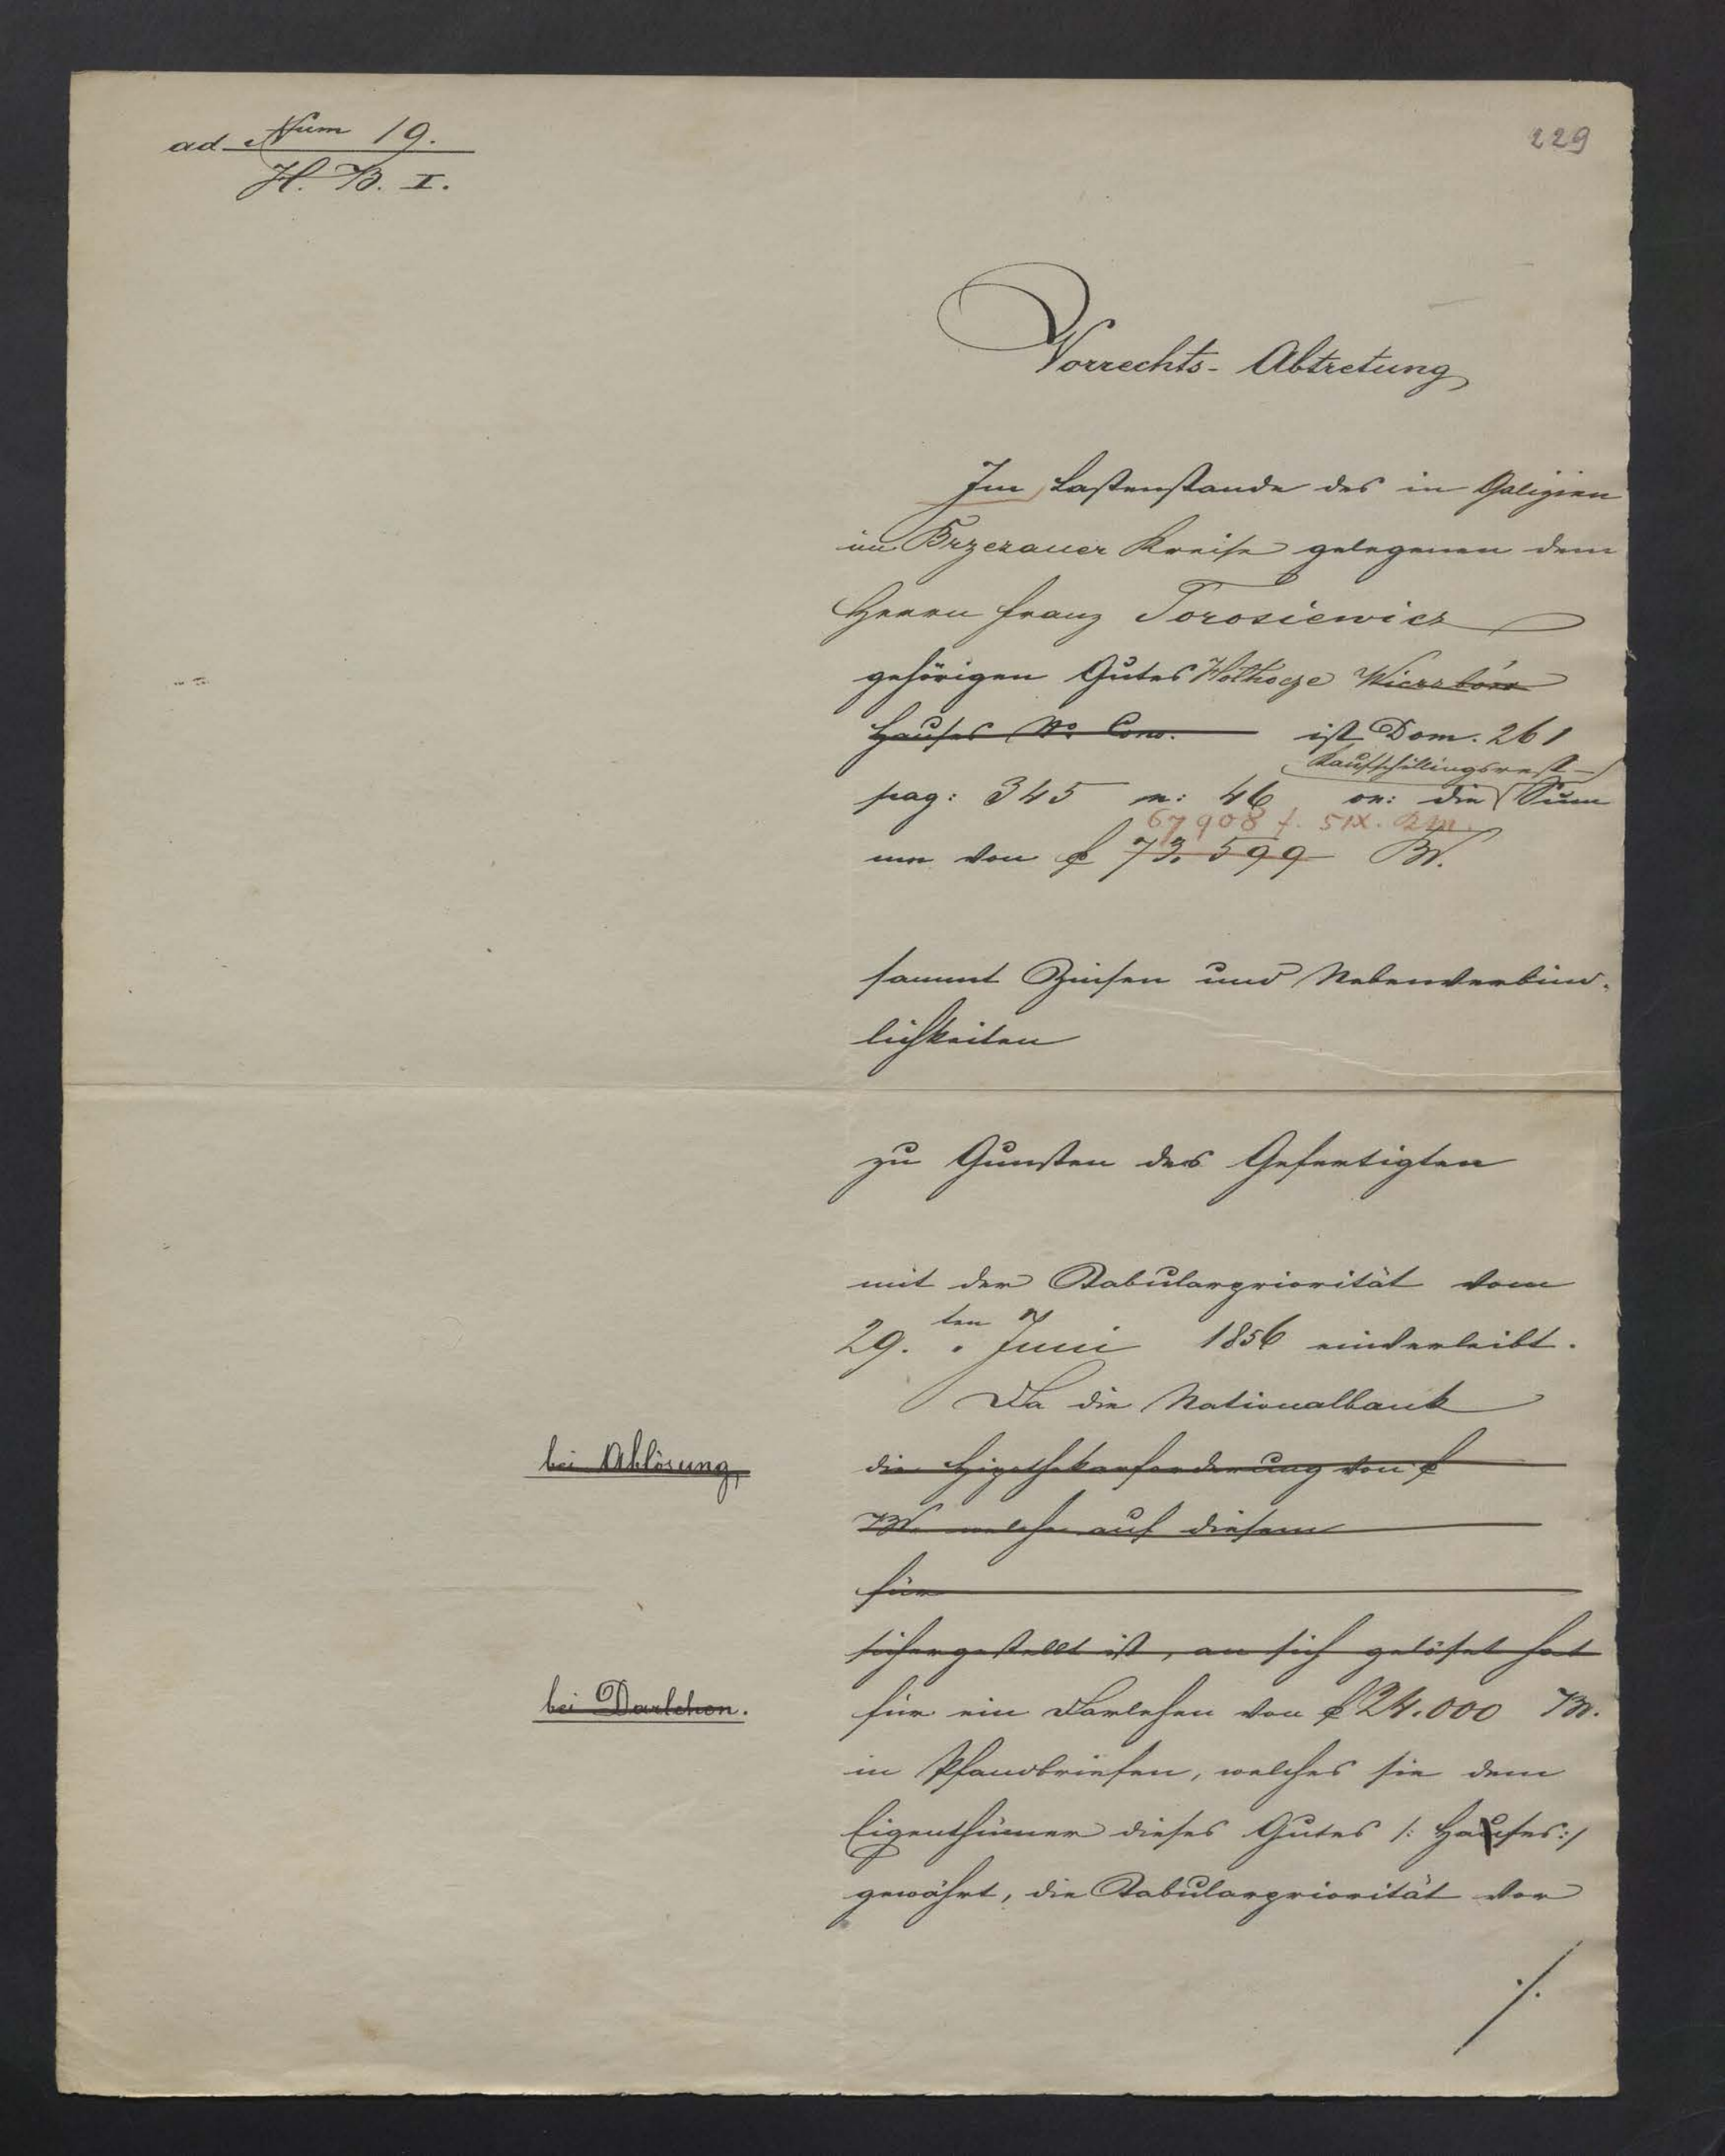 ad Num 19.
H. B. I.
229
Vorrechts-Abtretung
Im Lastenstande des in Galizien
im Brzezaner Kreise gelegenen dem
Herrn Franz Torosiewicz
gehörigen Gutes Hołhocze
Hauses No. Con. ist Dom. 261
Kaufschillingsrest-
pag: 345 n: 46 on: die Sum
67908 f. 51x.
me von f 73.599
sammt Zinsen und Nebenverbind-
lichkeiten
zu Gunsten des Gefertigten
mit der Tabularpriorität vom
29.ten Juni 1856 einverleibt.
Da die Nationalbank
bei Ablösung,
die Hipothekarforderung von f
welche auf diesem
für
sichergestellt ist, an sich gelöset hat
bei Darlehen.
für ein Darlehen von f 24.000
in Pfandbriefen, welches sie dem
Eigenthümer dieses Gutes /: Hauses:/
gewährt, die Tabularpriorität vor
./.